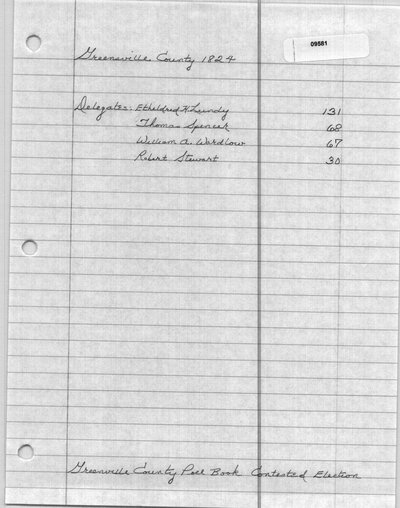 09581
Greensville County 1824
Delegates: Etheldred H. Lundy 131
Thomas Spencer 68
William A. Wardlow 67
Robert Stewart 30
Greenville County Poll Book Contested Election